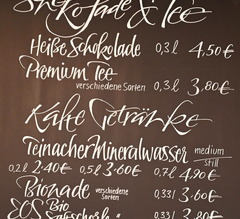 Schokolade & Tee
Heiße Schokolade 0,3 l 4,50 €
Premium Tee
verschiedene Sorten 0,3 l 3,80 €
Kalte Getränke
Teinacher Mineralwasser medium
still
0,2 l 2,40 € 0,5 l 3,60 € 0,7 l 4,90 €
Bionade verschiedene
Sorten 0,33 l 3,60 €
Bio
0,33 l 3,80 €